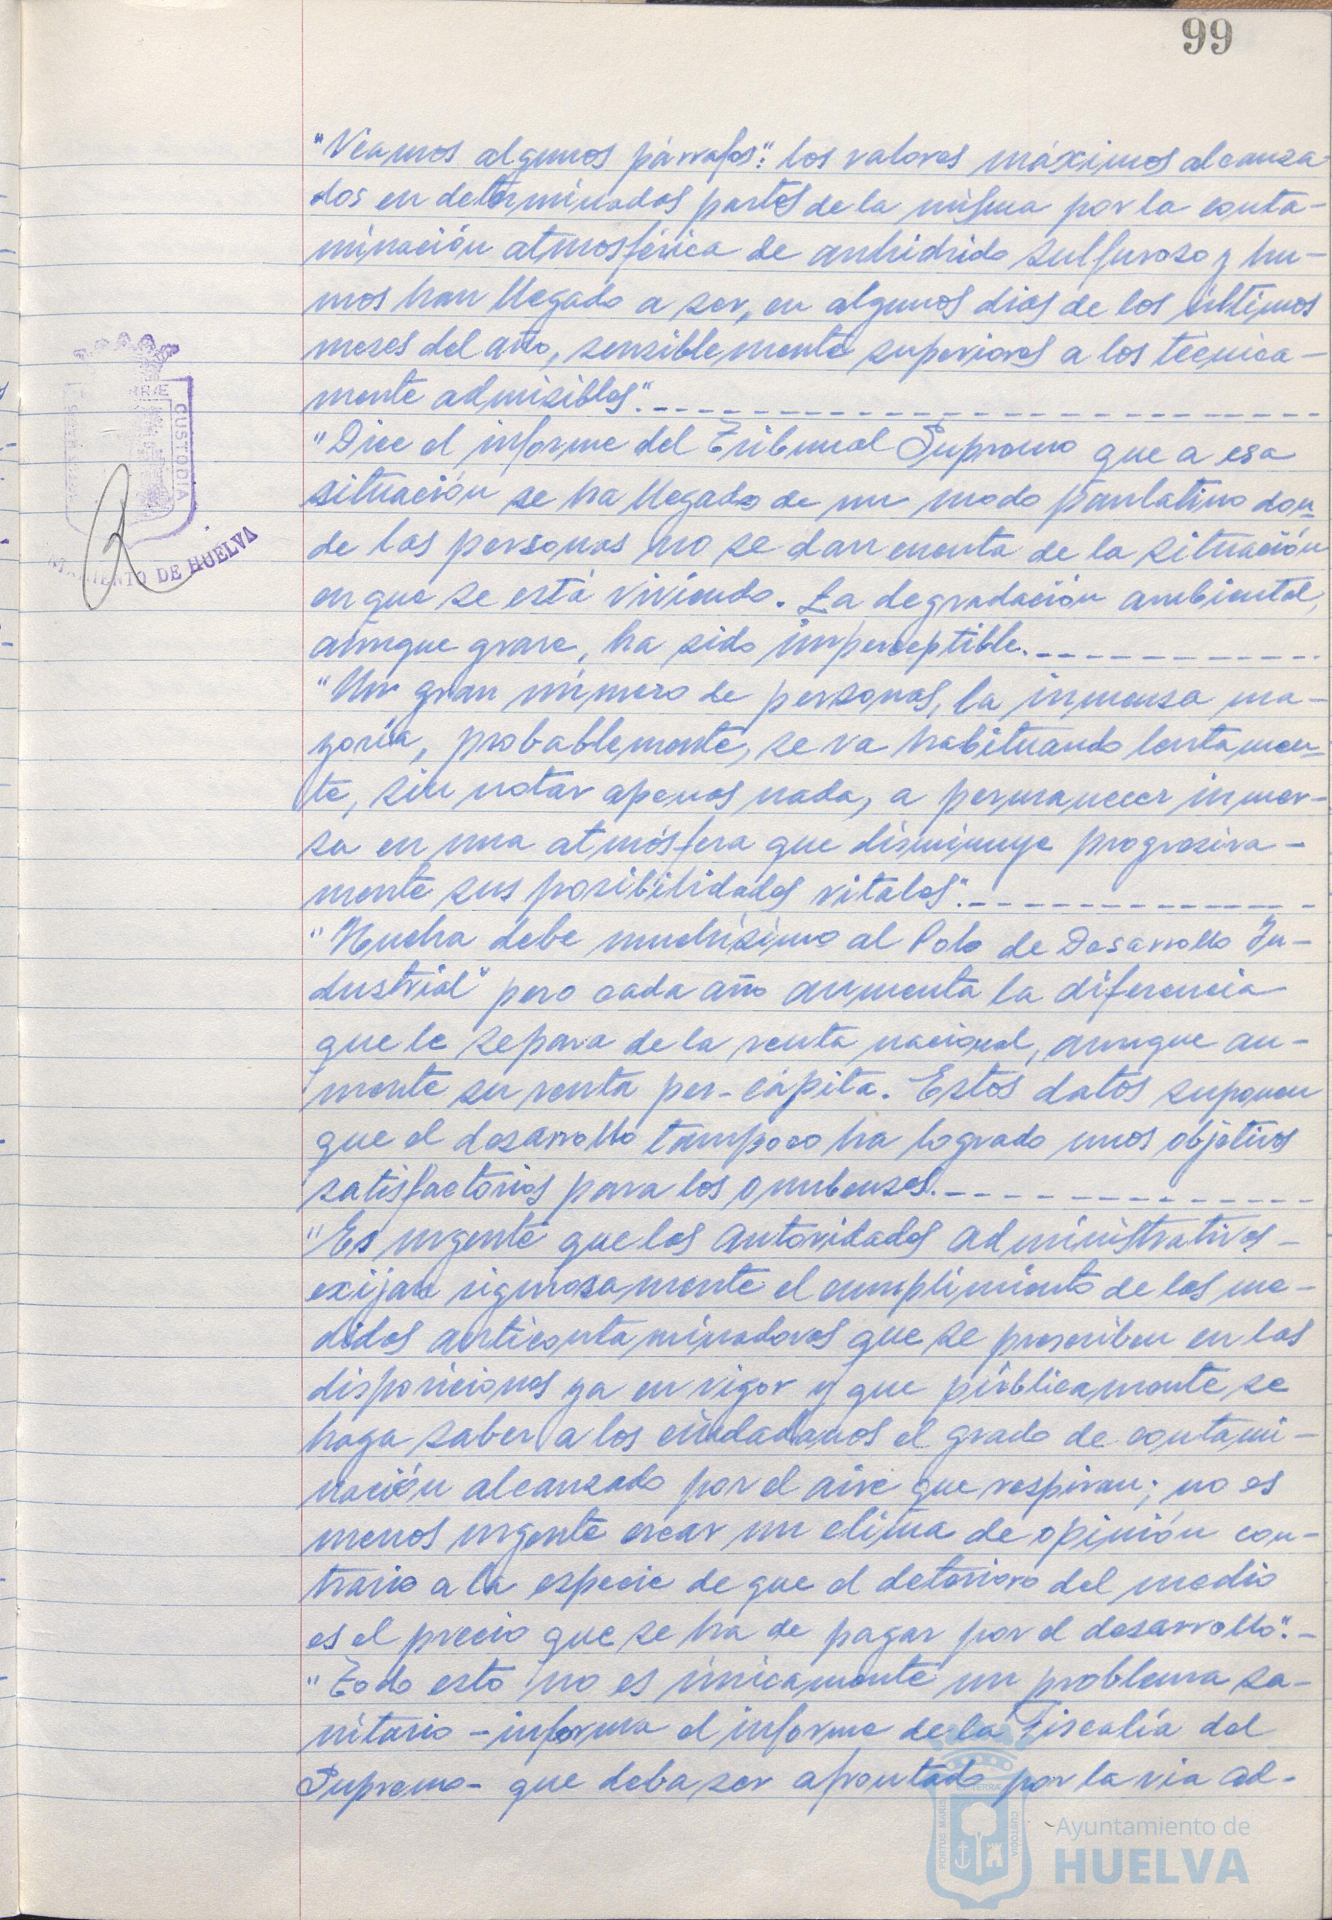 99
"Veamos algunos párrafos": los valores máximos alcanza-
dos en determinados partes de la misma por la conta-
minación atmosférica de anhidrido sulfuroso y hu-
mos han llegado a ser, en algunos dias de los últimos
meses del año, sensiblemente superiores a los técnica-
mente admisibles".
"Dice el informe del Tribunal Supremo que a esa
situación se ha llegado de un modo paulatino don-
de las personas no se dan cuenta de la situación
en que se está viviendo. La degradación ambiental,
aunque grave, ha sido imperceptible.
"Un gran número de personas, la inmensa ma-
yoría, probablemente, se va habituando lentamen-
te, sin notar apenas nada, a permanecer inmer-
sa en una atmósfera que disminuye progresiva-
mente sus posibilidades vitales".
"Huelva debe muchísimo al Polo de Desarrollo In-
dustrial" pero cada año aumenta la diferencia
que le separa de la renta nacional, aunque au-
mente su renta per-cápita. Estos datos suponen
que el desarrollo tampoco ha logrado unos objetivos
satisfactorios para los onubenses.
"Es urgente que las Autoridades Administrativas
exijan rigurosamente el cumplimiento de las me-
didas anticontaminadoras que se prescriben en las
disposiciones ya en vigor y que públicamente se
haga saber a los ciudadanos el grado de contami-
nación alcanzado por el aire que respiran; no es
menos urgente crear un clima de opinión con-
trario a la especie de que el deterioro del medio
es el precio que se ha de pagar por el desarrollo".-
"Todo esto no es únicamente un problema sa-
nitario - informa el informe de la Fiscalía del
Supremo- que deba ser afrontado por la via ad-
CUSTODIA
DE HUELVA
PORTUS MARIS
ET TERRAE
CUSTODIA
Ayuntamiento de
HUELVA